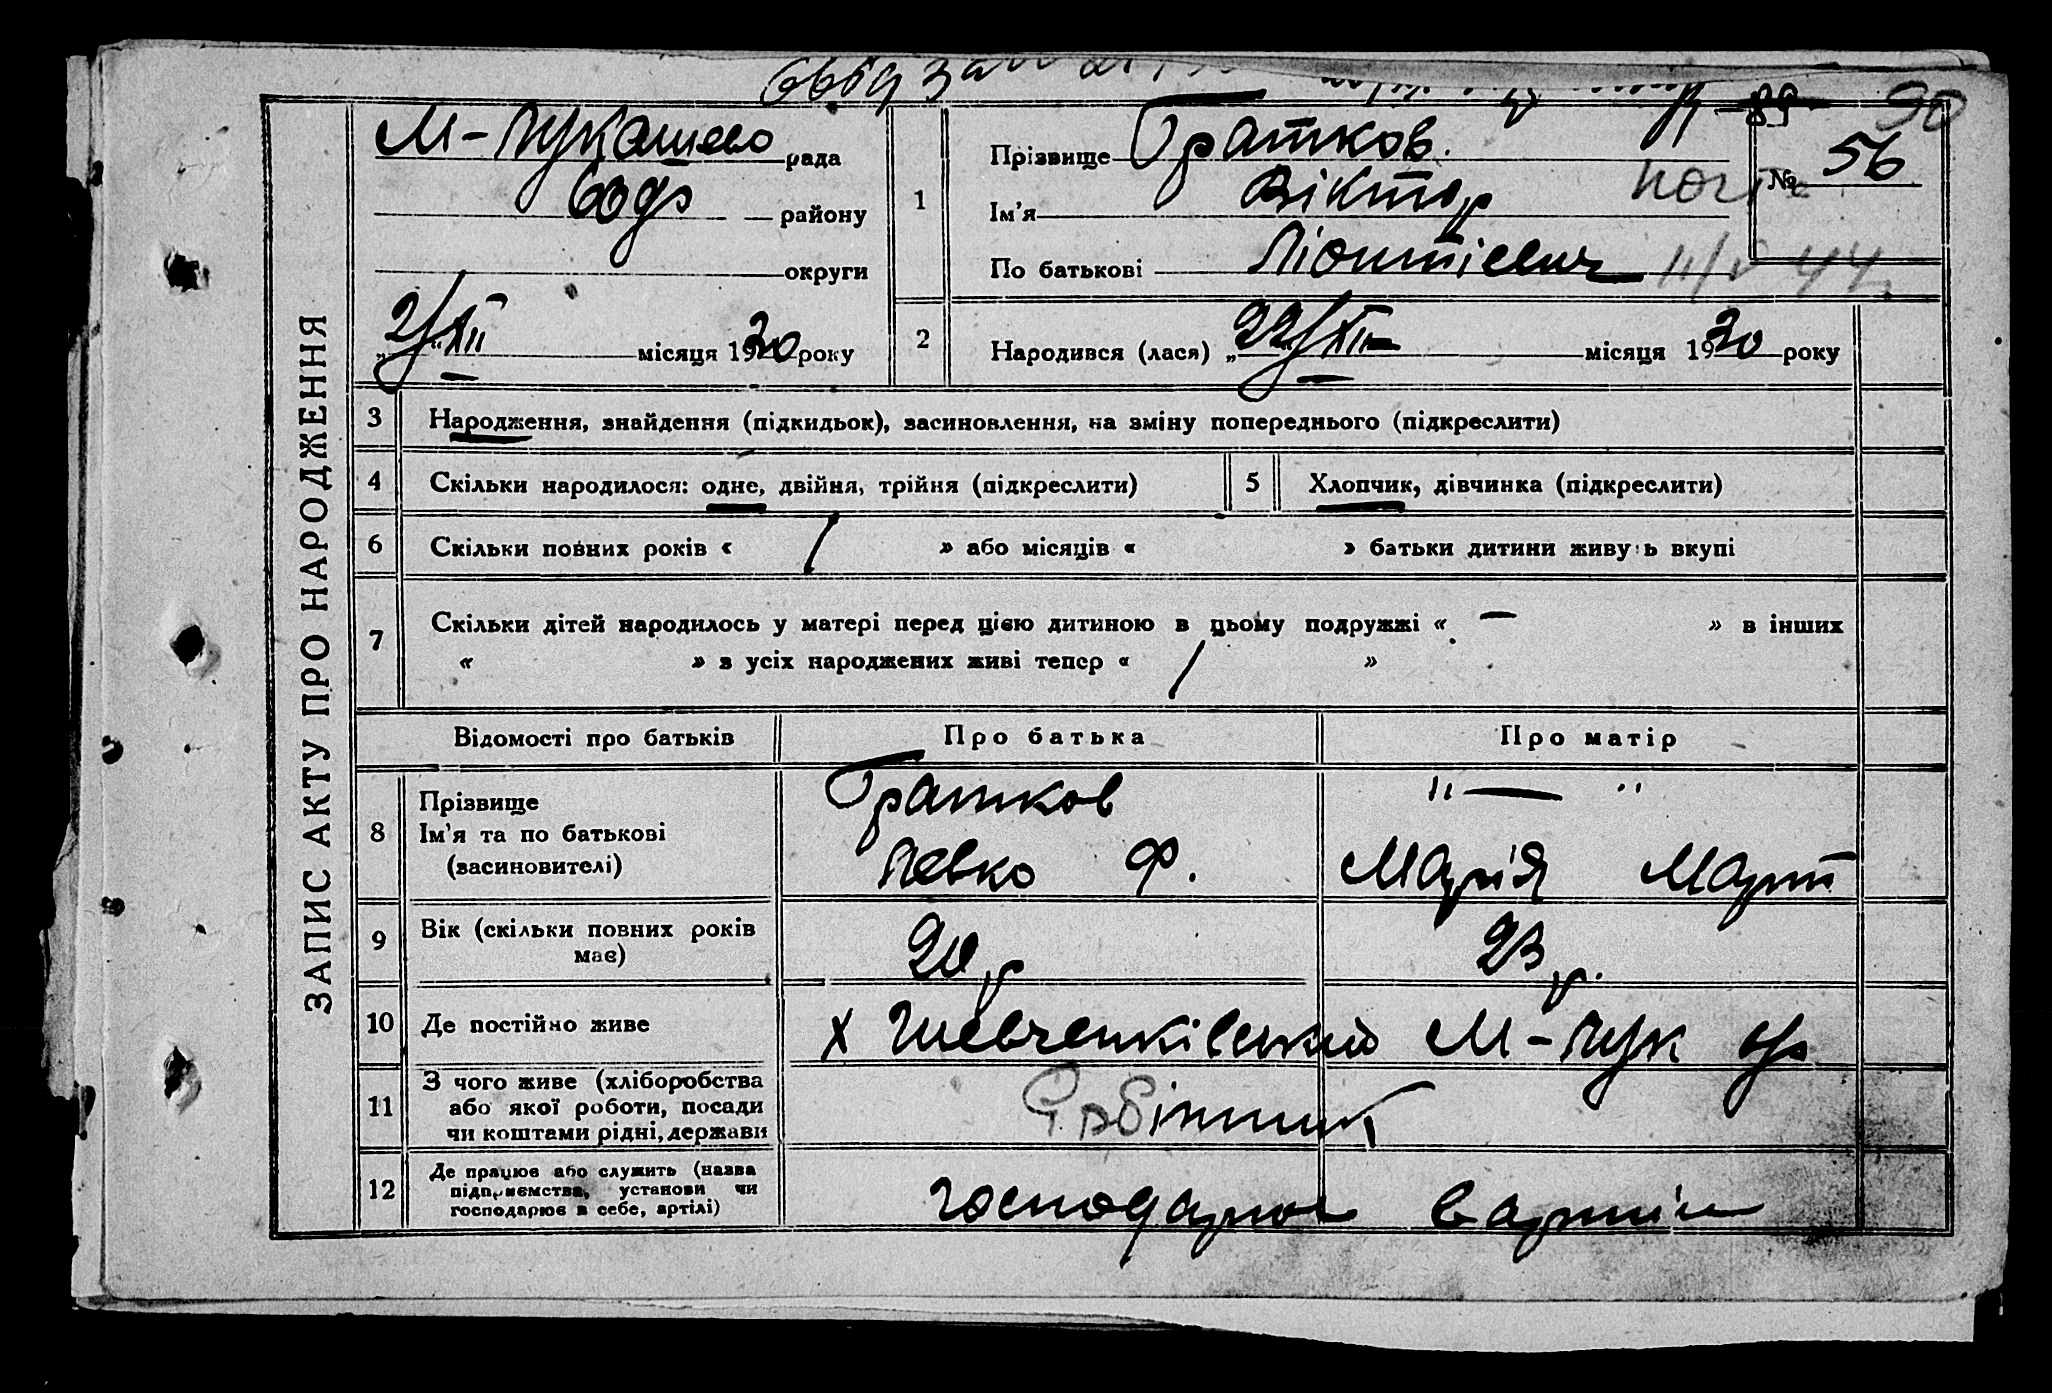 90
89
М-Лукашево рада
районy
округи
2/XII місяця 1930 року
1
Прізвище Братков.
Ім'я Віктор
По батькові Ліонтієвич
№ 56
II/V 44.
2
Народився (лася) „22/XII місяця 1930 року
ЗАПИС АКТУ ПРО НАРОДЖЕННЯ
3 Народження, знайдення (підкидьок), засиновлення, на зміну попереднього (підкреслити)
4 Скільки народилося: одне, двійня, трійня (підкреслити)
5 Хлопчик, дівчинка (підкреслити)
6 Скільки повних років « 1 » або місяців « » батьки дитини живуть вкупі
7 Скільки дітей народилось у матері перед цією дитиною в цьому подружжі « — » в інших
« » з усіх народжених живі тепер « 1 »
Відомості про батьків
Про батька
Про матір
8
Прізвище
Ім'я та по батькові
(засиновителі)
Братков
Левко Ф.
" — "
Марія Март
9
Вік (скільки повних років
має)
20 р
23 р.
10 Де постійно живе
х Шевченківський М-Лук с/р
11
З чого живе (хліборобства
або якої роботи, посади
чи коштами рідні, держави
12
Де працює або служить (назва
підприємства, установи чи
господарює в себе, артілі)
господарює в артіли